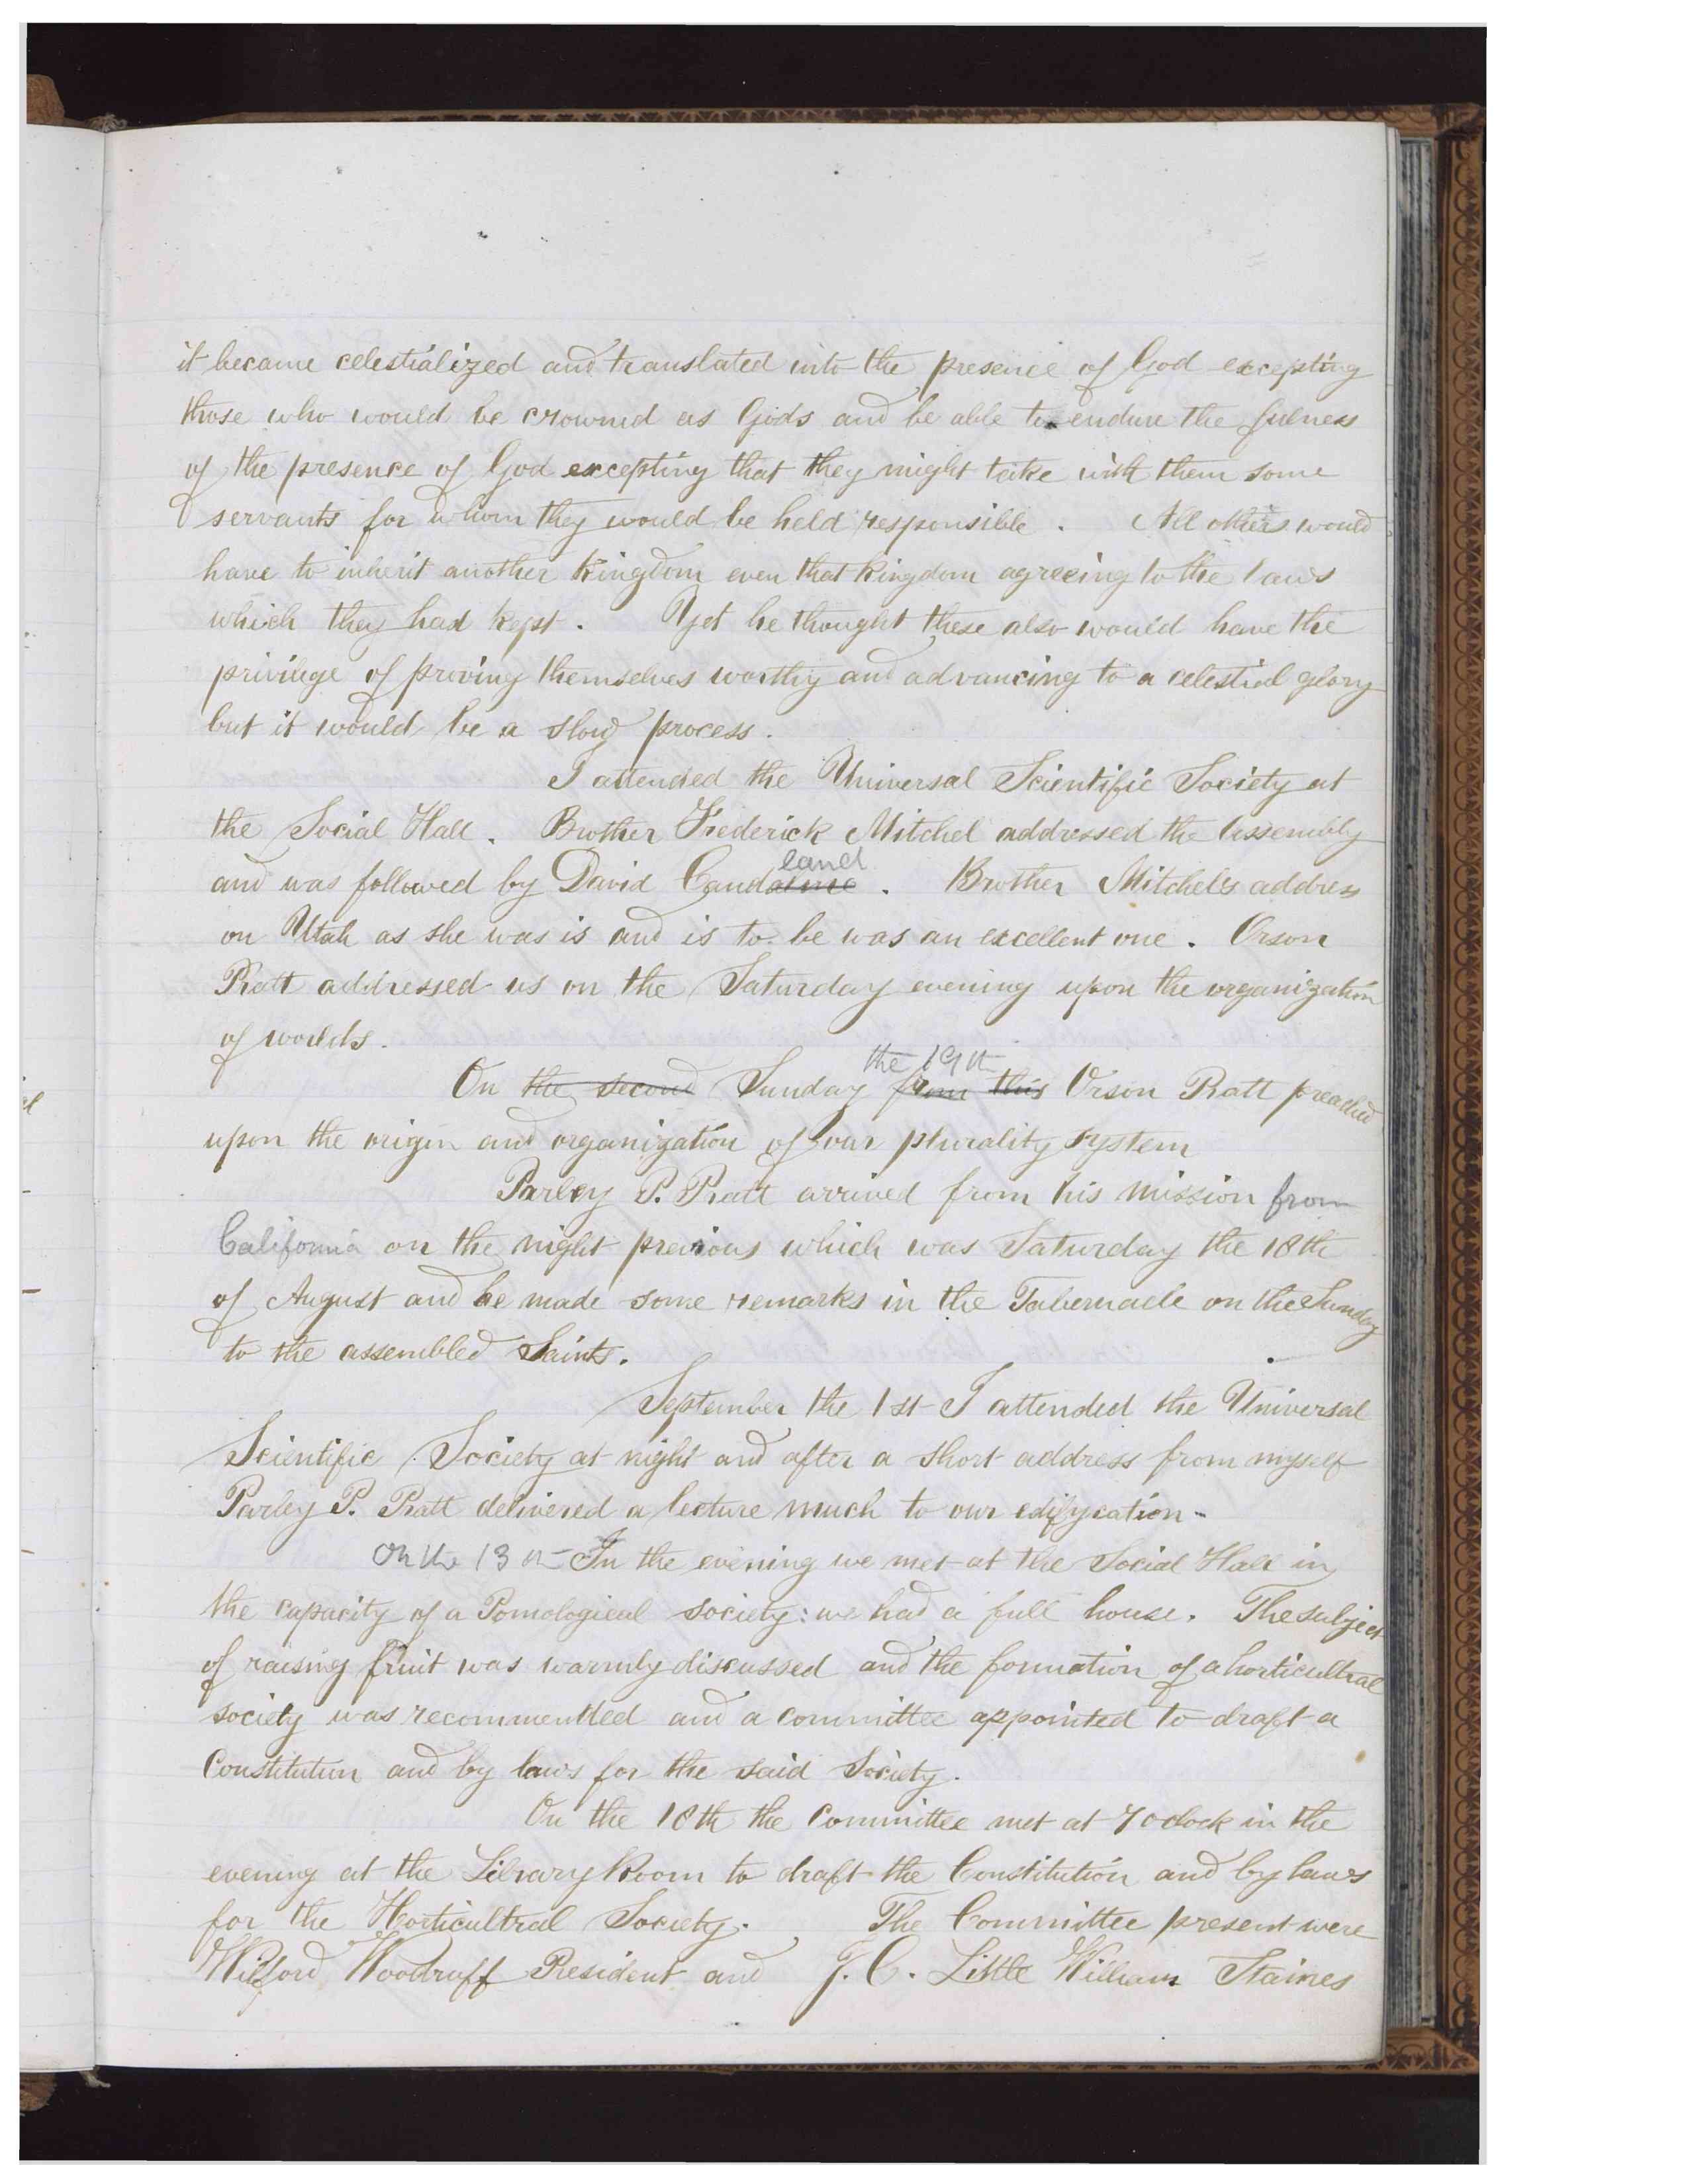 it became celestialized and translated into the presence of God excepting
those who would be crowned as Gods and be able to endure the fulness
of the presence of God excepting that they might take with them some
servants for whom they would be held responsible . All others would
have to inherit another kingdom even that kingdom agreeing to the laws
which they had kept . Yet he thought these also would have the
privilege of proving themselves worthy and advancing to a celestial glory
but it would be a slow process .
I attended the Universal Scientific Society at
the Social Hall . Brother Frederick Mitchel addressed the Assembly
land
and was followed by David Cand . Brother Mitchel's address
on Utah as she was is and is to be was an excellent one . Orson
Pratt addressed us on the Saturday evening upon the organization
of worlds .
the 19th
On the second Sunday from this Orson Pratt preached
upon the origin and organization of our plurality system
Parley P. Pratt arrived from his mission from
California on the night previous which was Saturday the 18th
of August and he made some remarks in the Tabernacle on the Sunday
to the assembled Saints .
September the 1st I attended the Universal
Scientific Society at night and after a short address from myself
Parley P. Pratt delivered a lecture much to our edifycation -
On the 13th In the evening we met at the Social Hall in
the capacity of a Pomological society : we had a full house . The subject
of raising fruit was warmly discussed and the formation of a horticultral
society was recommended and a committee appointed to draft a
Constitution and by laws for the said Society .
On the 18th the Committee met at 7 oclock in the
evening at the Library Room to draft the Constitution and by laws
for the Horticultral Society . The Committee present were
Wilford Woodruff President and J. C. Little William Staines